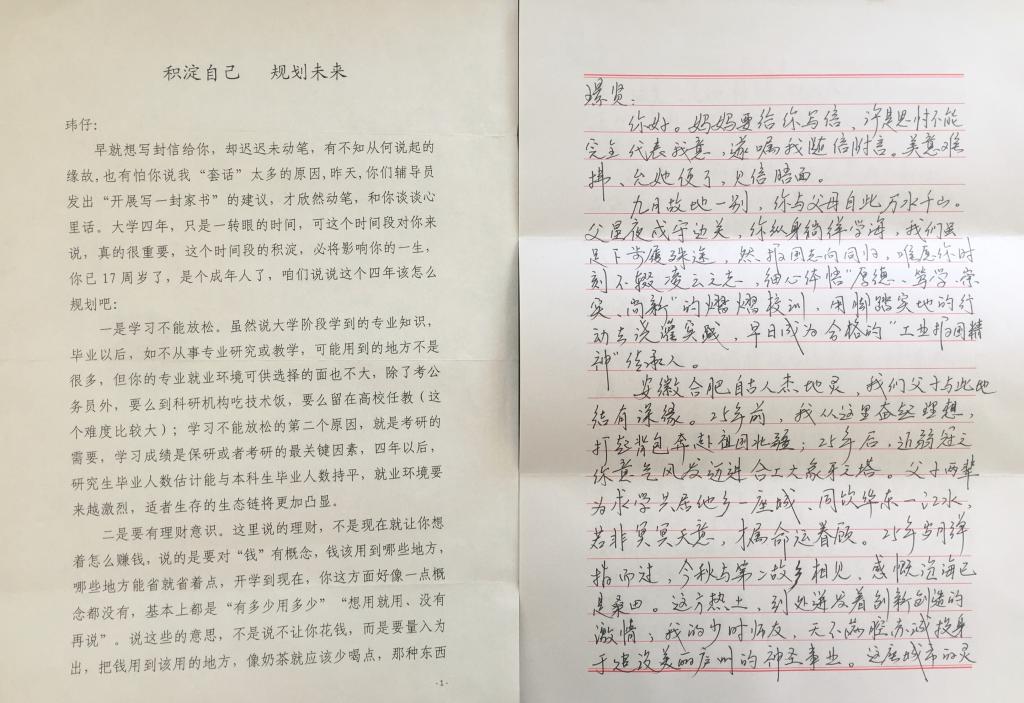 积淀自己 规划未来
玮仔：
早就想写封信给你，却迟迟未动笔，有不知从何说起的
缘故，也有怕你说我“套话”太多的原因，昨天，你们辅导员
发出“开展写一封家书”的建议，才欣然动笔，和你谈谈心
里话。大学四年，只是一转眼的时间，可这个时间段对你来
说，真的很重要，这个时间段的积淀，必将影响你的一生，
你已 17 周岁了，是个成年人了，咱们说说这个四年该怎么
规划吧：
一是学习不能放松。虽然说大学阶段学到的专业知识，
毕业以后，如不从事专业研究或教学，可能用到的地方不是
很多，但你的专业就业环境可供选择的面也不大，除了考公
务员外，要么到科研机构吃技术饭，要么留在高校任教（这
个难度比较大）；学习不能放松的第二个原因，就是考研的
需要，学习成绩是保研或者考研的最关键因素，四年以后，
研究生毕业人数估计能与本科生毕业人数持平，就业环境要
来越激烈，适者生存的生态链将更加凸显。
二是要有理财意识。这里说的理财，不是现在就让你想
着怎么赚钱，说的是要对“钱”有概念，钱该用到哪些地方，
哪些地方能省就省着点，开学到现在，你这方面好像一点概
念都没有，基本上都是“有多少用多少”“想用就用、没有
再说”。说这些的意思，不是说不让你花钱，而是要量入为
出，把钱用到该用的地方，像奶茶就应该少喝点，那种东西
-1-
贤：
你好。妈妈要给你写信，许是思忖不能
完全代表我意，遂嘱我随信附言。美意难
拂，允她便了，见信晤面。
九月故地一别，你与父母自此万水千山。
父昼夜戍守边关，你纵身徜徉学海，我们虽
足下步履殊途，然报国志向同归，唯愿你时
刻不辍凌云之志，细心体悟“厚德、笃学、崇
实、尚新”的熠熠校训，用脚踏实地的行
动去浇灌实践，早日成为合格的“工业报国精
神”传承人。
安徽合肥自古人杰地灵，我们父子与此地
结有深缘。25年前，我从这里奋起理想，
打起背包奔赴祖国北疆；25年后，近弱冠之
你意气风发迈进合工大象牙之塔。父子两辈
为求学共居他乡一座城、同饮华东一江水，
若非冥冥天意，才属命运眷顾。25年岁月弹
指而过，今秋与第二故乡相见，感慨沧海已
是桑田。这方热土，到处迸发着创新创造的
激情；我的少时师友，无不满腔赤诚投身
于建设美丽庐州的神圣事业。这座城市的灵